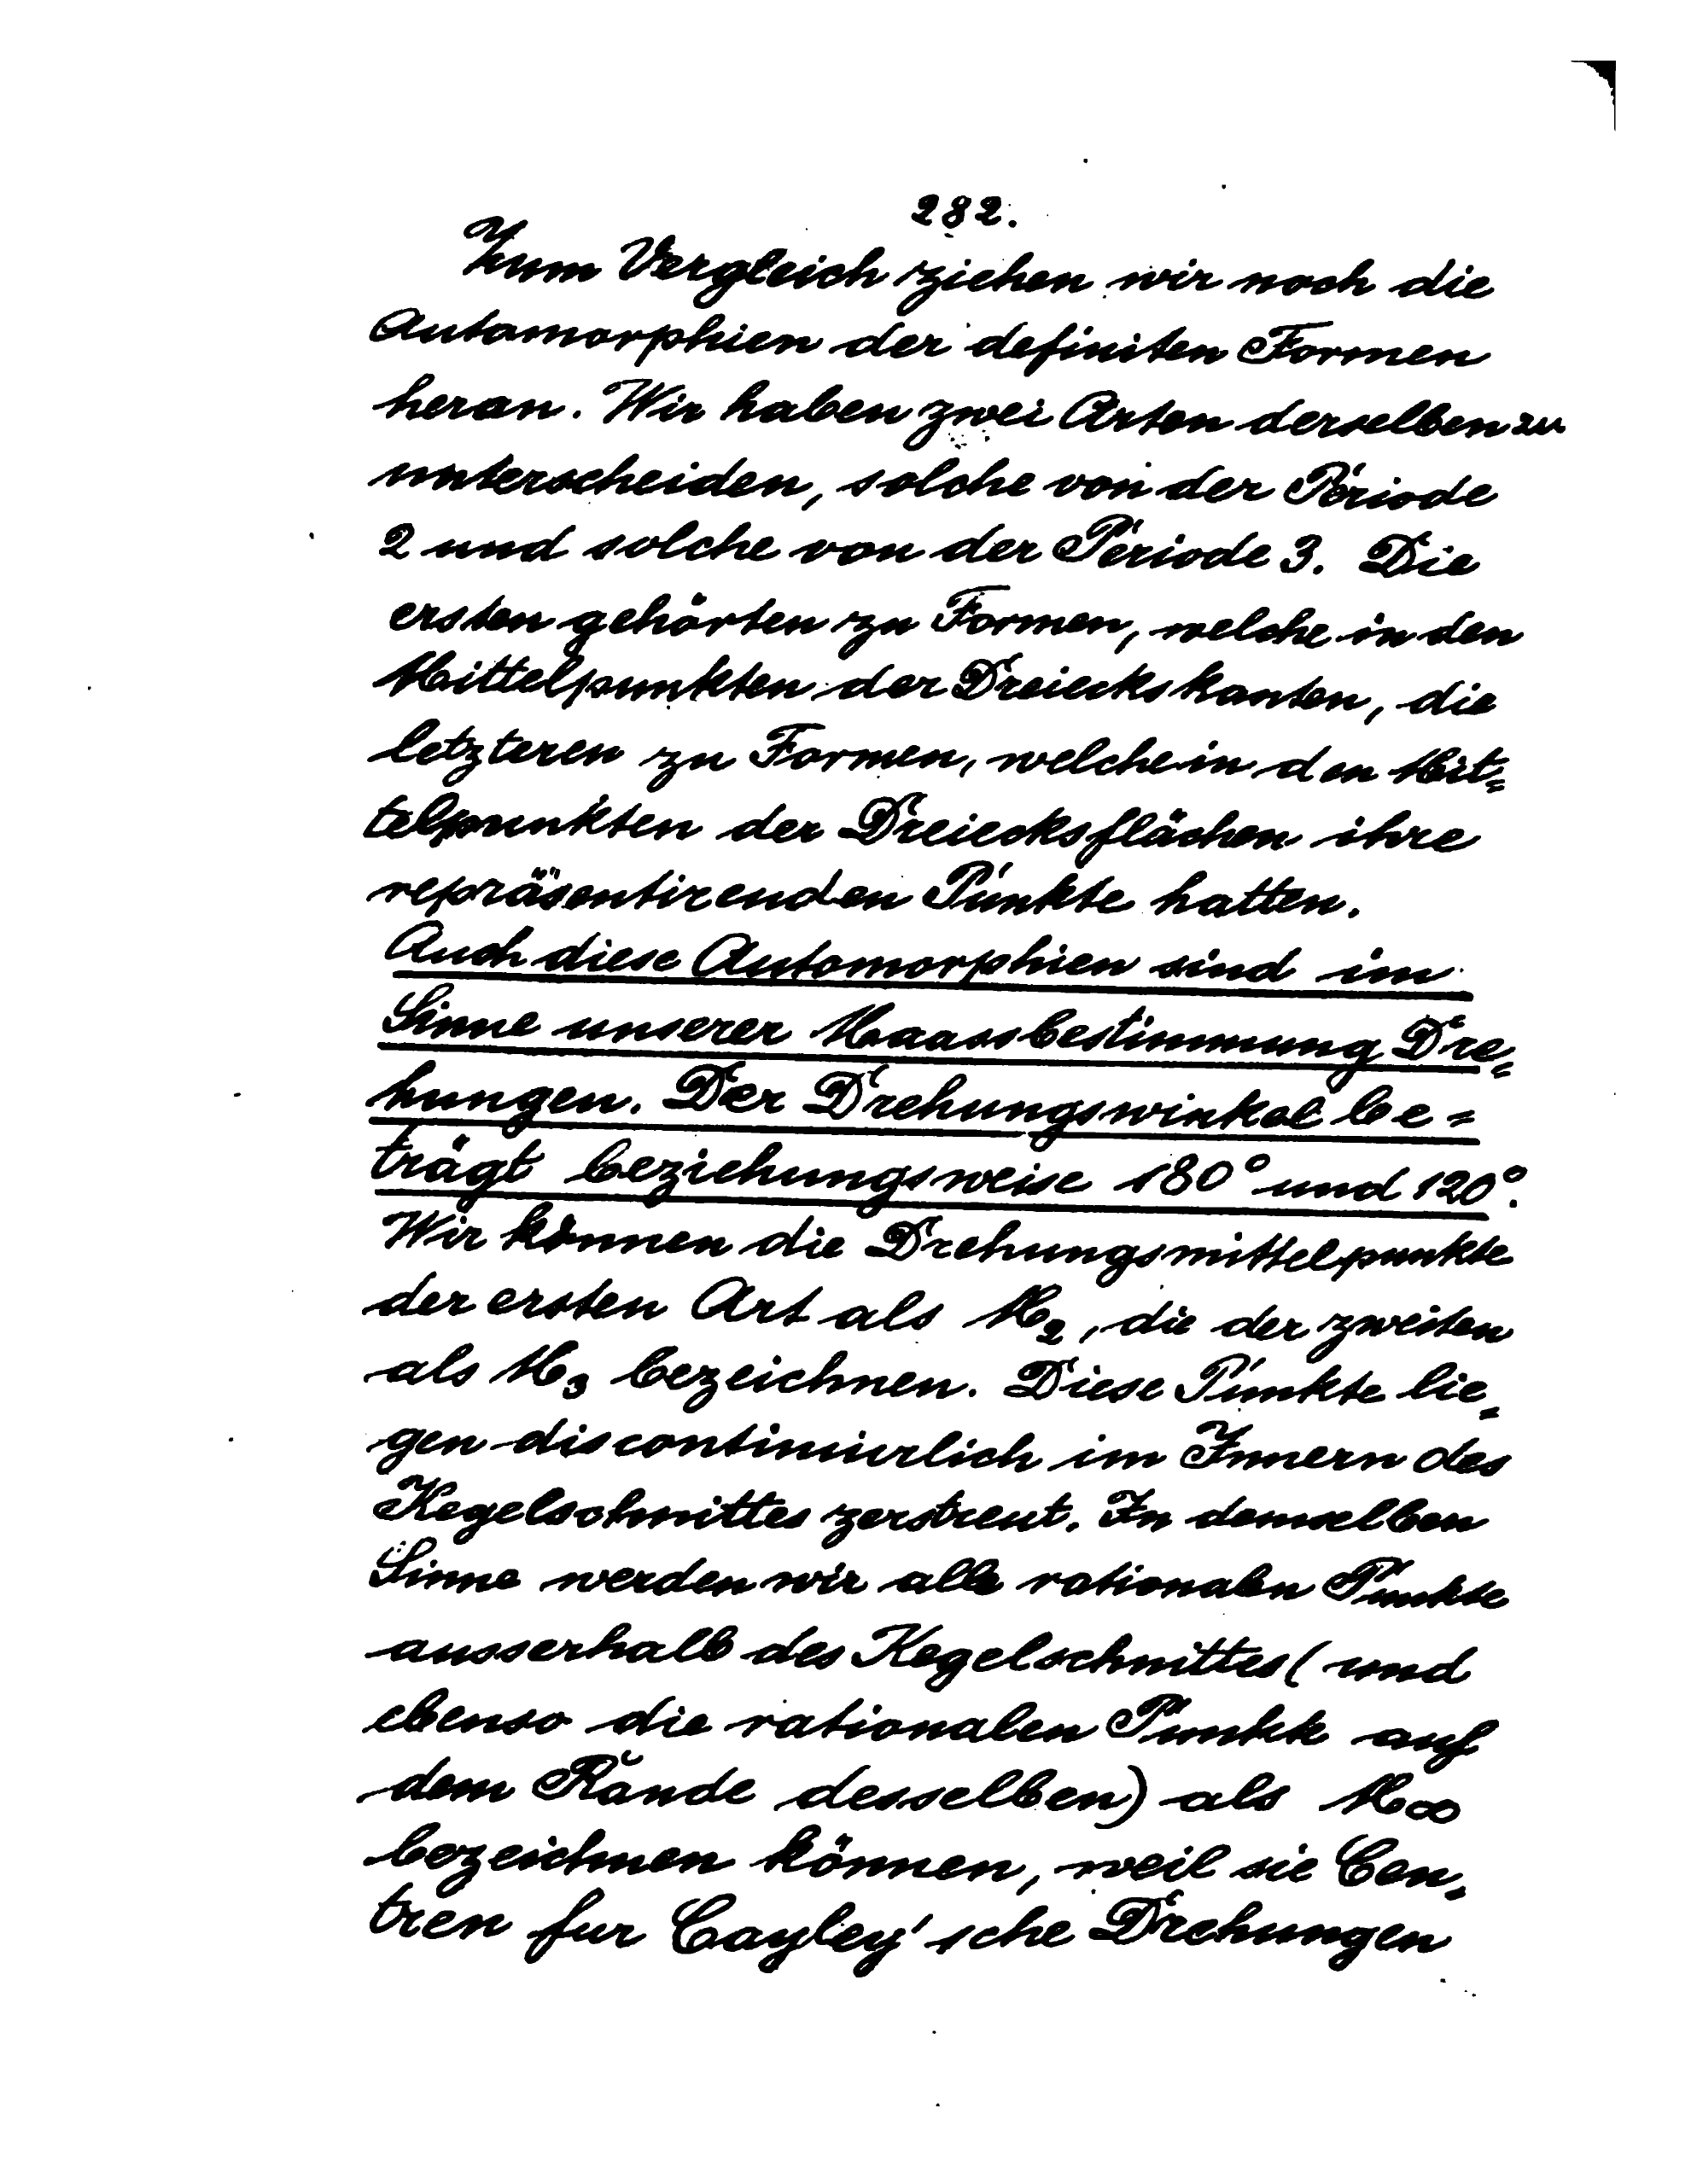 282.
Zum Vergleich ziehen wir noch die
Automorphien der definiten Formen
heran. Wir haben zwei Arten derselben zu
unterscheiden, solche von der Periode
2 und solche von der Periode 3. Die
ersten gehörten zu Formen, welche in den
Mittelpunkten der Dreieckskanten, die
letzteren zu Formen, welche in den Mit=
telpunkten der Dreiecksflächen ihre
repräsentirenden Punkte hatten.
Auch diese Automorphien sind im
Sinne unserer Maassbestimmung Dre=
hungen. Der Drehungswinkel be=
trägt beziehungsweise 180° und 120°.
Wir können die Drehungsmittelpunkte
der ersten Art als M₂, die der zweiten
als M₃ bezeichnen. Diese Punkte lie=
gen discontinuierlich im Innern des
Kegelschnittes zerstreut. In demselben
Sinne werden wir alle rationalen Punkte
ausserhalb des Kegelschnittes (und
ebenso die rationalen Punkte auf
dem Rande desselben) als M∞
bezeichnen können, weil sie Cen=
tren fur Cayley'sche Drehungen